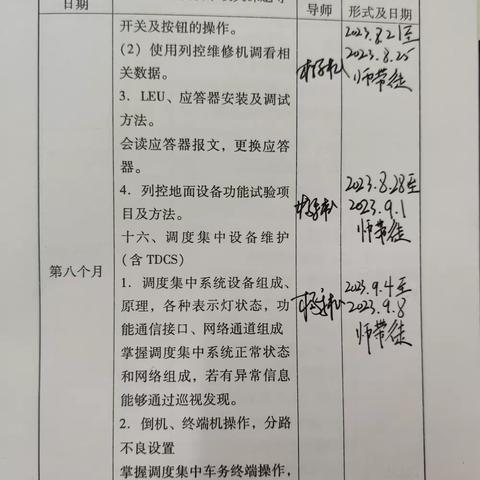 日期
导师
形式及日期
开关及按钮的操作。
（2）使用列控维修机调看相
关数据。
2023.8.21至
2023.8.25
师带徒
3．LEU、应答器安装及调试
方法。
会读应答器报文，更换应答
器。
4．列控地面设备功能试验项
目及方法。
2023.8.28至
2023.9.1
师带徒
第八个月
十六、调度集中设备维护
(含 TDCS)
1．调度集中系统设备组成、
原理，各种表示灯状态，功
能通信接口、网络通道组成
掌握调度集中系统正常状态
和网络组成，若有异常信息
能够通过巡视发现。
2023.9.4至
2023.9.8
师带徒
2．倒机、终端机操作，分路
不良设置
掌握调度集中车务终端操作，